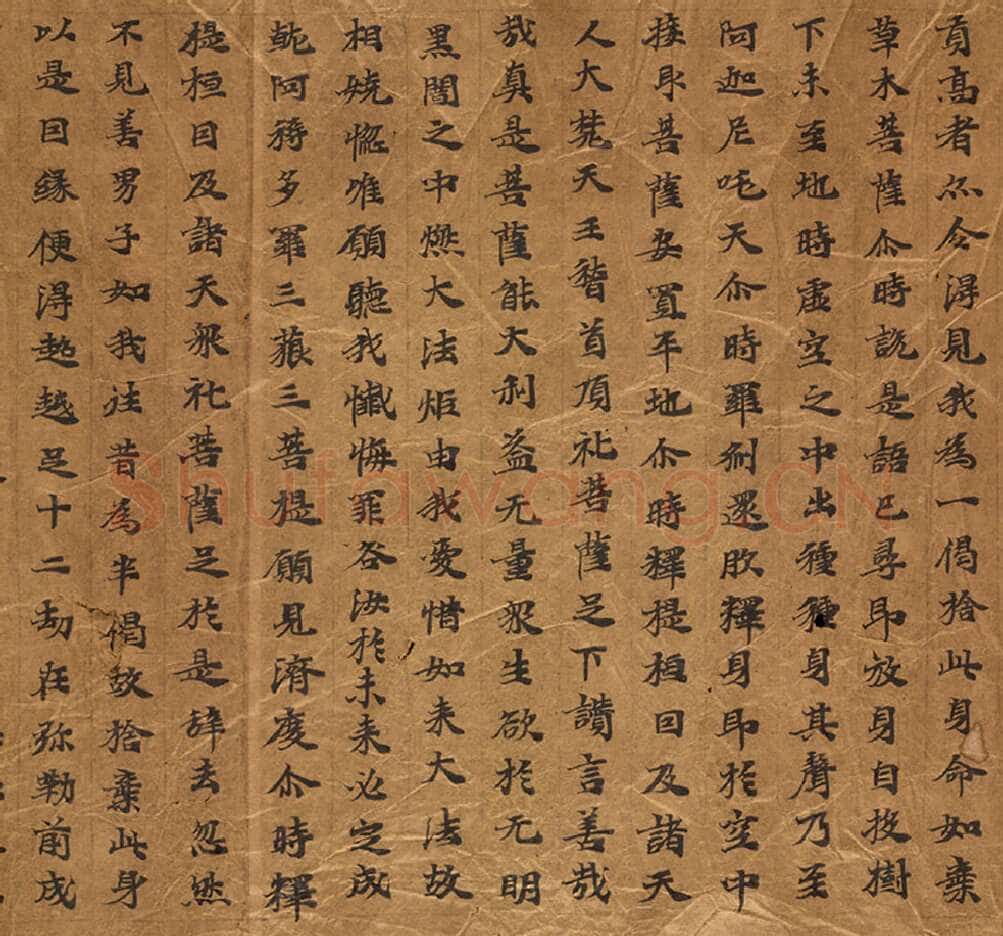 貢高者亦令得見我為一偈捨此身命如棄
草木菩薩尒時說是語已尋即放身自投樹
下未至地時虛空之中出種種身其聲乃至
阿迦尼吒天尒時羅刹還復釋身即於空中
接取菩薩安置平地尒時釋提桓因及諸天
人大梵天王稽首頂礼菩薩足下讚言善哉
哉真是菩薩能大利益无量眾生欲於无明
黑闇之中燃大法炬由我愛惜如来大法故
相嬈惱唯願聽我懺悔罪咎汝於未来必定成
就阿耨多羅三藐三菩提願見濟度尒時釋
提桓因及諸天眾礼菩薩足於是辞去忽然
不見善男子如我往昔為半偈故捨棄此身
以是因緣便得超越足十二劫在弥勒前成
Shufawang.CN